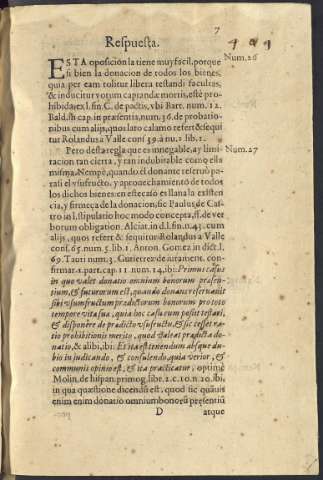 7
491
Respuesta.
ESTA oposicion la tiene muy facil, porque Num. 26
si bien la donacion de todos los bienes,
quia per eam tolitur libera testandi facultas,
& inducitur votum capiandæ mortis, esté pro
hibida, ex l. fin C. de pactis, vbi Bart. num. 12.
Bald. in cap. in præsentia, num. 36. de probatio-
nibus cum alijs, quos lato calamo refert & sequi
tur Rolandus a Valle conf. 39. à nu. 2 lib. 1.
Pero desta regla que es innegable, ay limi- Num. 27
tacion tan cierta, y tan indubitable como ella
misma. Nempè, quando el donante reseruò pa-
ra si el vsufructo, y aprouechamiento de todos
los dichos bienes: en este caso es llana la existen
cia, y firmeça de la donacion, sic Paulus de Cas-
tro in l. stipulatio hoc modo concepta, ff. de ver
borum obligation. Alciat. in d. l. fin. n. 43. cum
alijs, quos refert & sequitur Rolandus a Valle
conf. 65. num. 5. lib. 1. Anton. Gomez in dict. l.
69. Tauri num. 3. Gutierrez de iurament. con-
firmar. 1. part. cap. 11. num. 14. ibi: Primus casus
in quo valet donatio omnium bonorum præsen-
tium, & futurorum est, quando donans reseruauit
sibi vsumfructum prædictorum bonorum pro toto
tempore vitæ suæ, quia hoc casu cum possit testari,
& disponere de prædicto vsufructu, & sic cesset ra-
tio prohibitionis meritò, quod valeat prædicta do-
natio, & alibi, ibi: Et ita est tenendum absque du-
bio in judicando, & consulendo, quia verior, &
communis opinio est, & ita practicatur, optimè
Molin. de hispan. primog. libr. 2. c. 10. n. 20. ibi,
in qua quæstione dicendũ est, quod sic quãuis
enim enim donatio omnium bonorũ præsentiũ
D atque